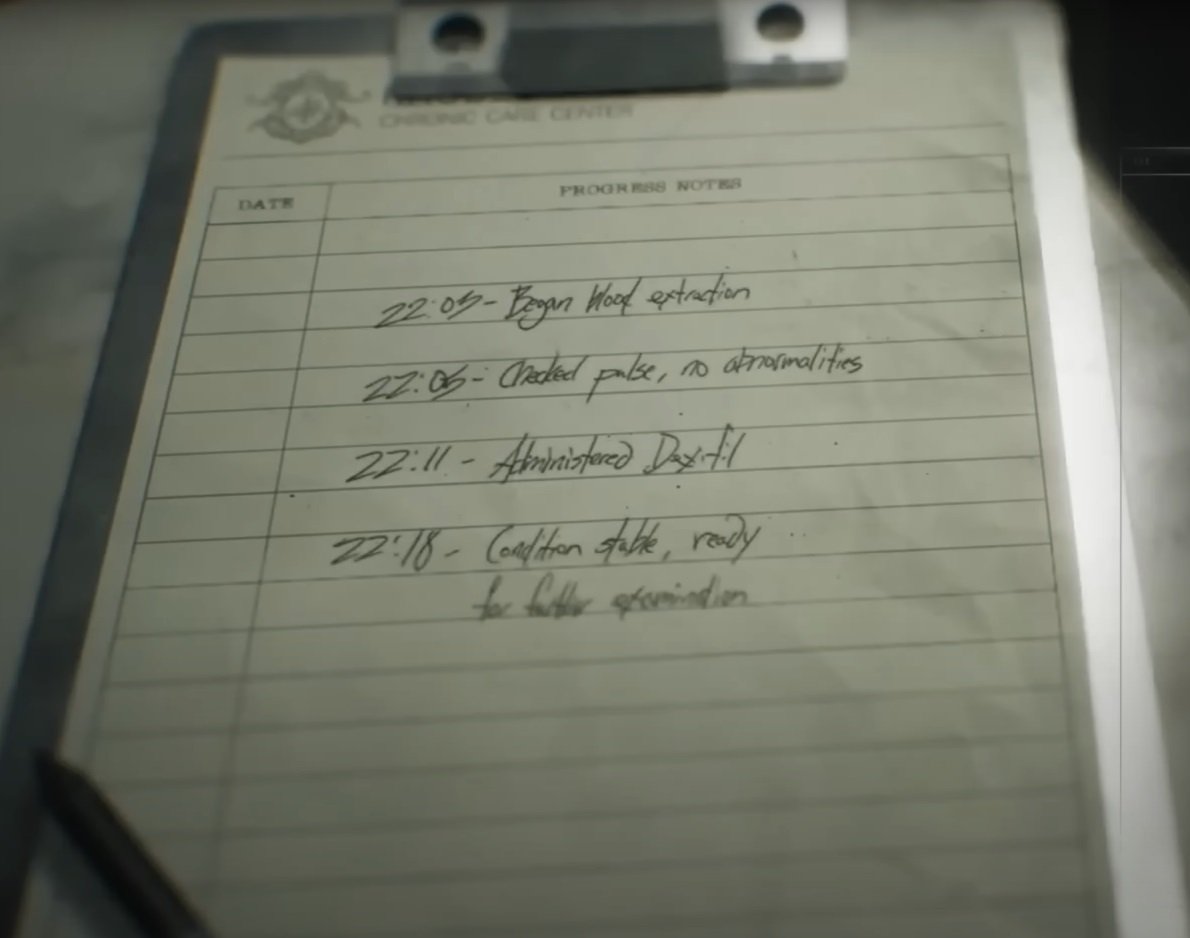 CHRONIC CARE CENTER
DATE PROGRESS NOTES
22:03- Began blood extraction
22:05- Checked pulse, no abnormalities
22:11 - Administered
22:18 - Condition stable, ready
for further examination